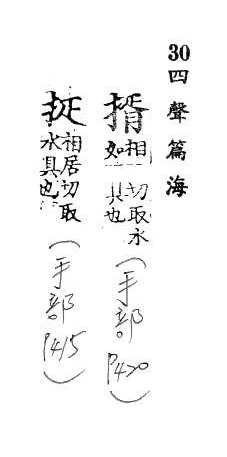 30四聲篇海
揟 相如切取水具也(手部P420)
相居切取水具也(手部P415)